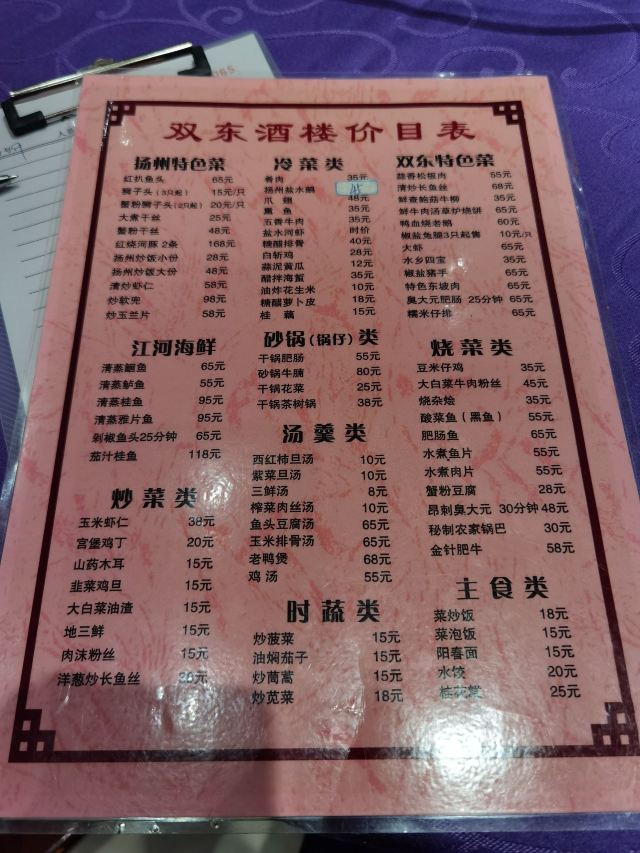 双东酒楼价目表
扬州特色菜
红扒鱼头 65元
狮子头（3只起） 15元/只
蟹粉狮子头（2只起） 20元/只
大煮干丝 25元
蟹粉干丝 48元
红烧河豚 2条 168元
扬州炒饭小份 28元
扬州炒饭大份 48元
清炒虾仁 58元
炒软兜 98元
炒玉兰片 58元
冷菜类
肴肉 35元
扬州盐水鹅 45
爪翅 48元
熏鱼 35元
五香牛肉 35元
盐水河虾 时价
糖醋排骨 40元
白斩鸡 28元
蒜泥黄瓜 12元
醋拌海蜇 35元
油炸花生米 10元
糖醋萝卜皮 18元
桂藕 15元
双东特色菜
蒜香松板肉 55元
清炒长鱼丝 68元
鲜查鲍菇牛柳 35元
鲜牛肉汤草炉烧饼 65元
鸭血烧老鹅 60元
椒盐兔腿3只起售 10元/只
大虾 65元
水乡四宝 35元
椒盐猪手 65元
特色东坡肉 65元
臭大元肥肠 25分钟 65元
糯米仔排 65元
江河海鲜
清蒸鮰鱼 65元
清蒸鲈鱼 55元
清蒸桂鱼 95元
清蒸雅片鱼 95元
剁椒鱼头25分钟 65元
茄汁桂鱼 118元
砂锅（锅仔）类
干锅肥肠 55元
砂锅牛腩 80元
干锅花菜 25元
干锅茶树锅 38元
烧菜类
豆米仔鸡 35元
大白菜牛肉粉丝 45元
烧杂烩 35元
酸菜鱼（黑鱼） 55元
肥肠鱼 65元
水煮鱼片 55元
水煮肉片 55元
蟹粉豆腐 28元
昂刺臭大元 30分钟 48元
秘制农家锅巴 30元
金针肥牛 58元
汤羹类
西红柿旦汤 10元
紫菜旦汤 10元
三鲜汤 8元
榨菜肉丝汤 10元
鱼头豆腐汤 65元
玉米排骨汤 65元
老鸭煲 68元
鸡汤 55元
炒菜类
玉米虾仁 38元
宫堡鸡丁 20元
山药木耳 15元
韭菜鸡旦 15元
大白菜油渣 15元
地三鲜 15元
肉沫粉丝 15元
洋葱炒长鱼丝
时蔬类
炒菠菜 15元
油焖茄子 15元
炒茼蒿 15元
炒苋菜 18元
主食类
菜炒饭 18元
菜泡饭 15元
阳春面 15元
水饺 20元
桂花 25元